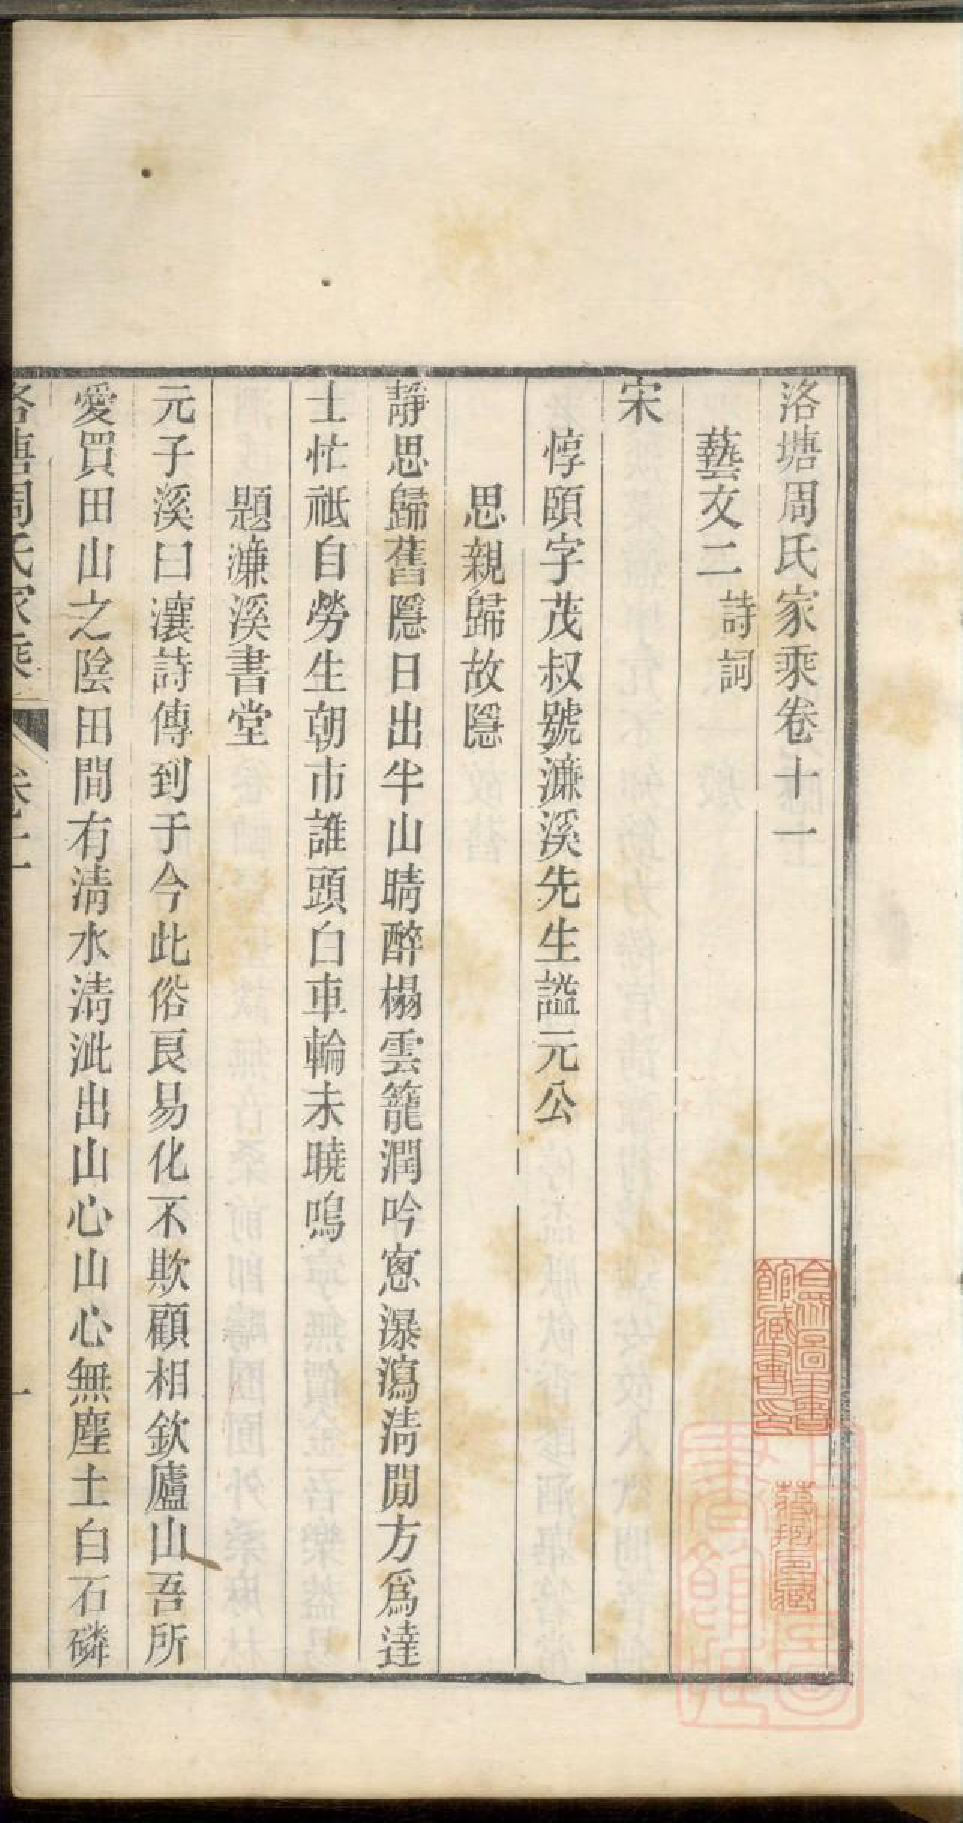 洛塘周氏家乘卷十一
藝文二詩詞
宋
惇頤字茂叔號濂溪先生謚元公
思親歸故隱
靜思歸舊隱日出半山晴醉榻雲籠潤吟窻瀑瀉淸閒方爲達
士忙祇自勞生朝市誰頭白車輪未曉鳴
題濂溪書堂
元子溪曰瀼詩傳到于今此俗良易化不欺顧相欽廬山吾所
愛買田山之陰田間有淸水淸泚出山心山心無塵土白石磷
洛塘周氏家乘
卷十一
一